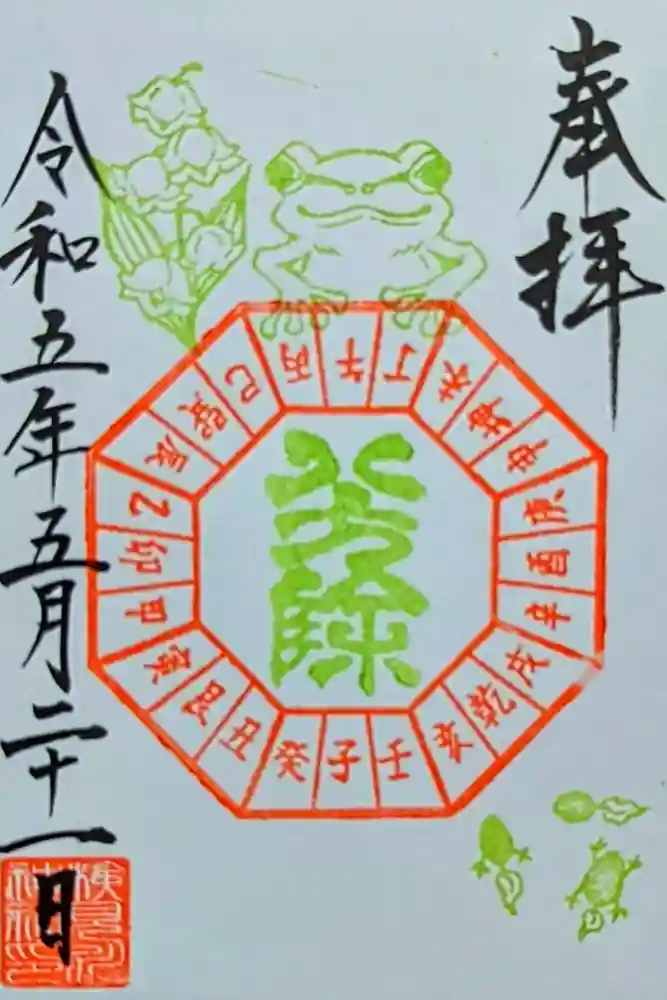 奉拝
八方除
丙
午
丁
未
坤
申
庚
酉
辛
戌
乾
亥
壬
子
癸
丑
艮
寅
甲
卯
乙
辰
巽
巳
令和五年五月二十一日
検見川
神社印